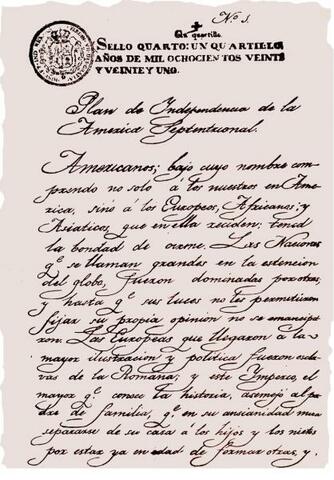 Nº 1.
Un quartillo.
SELLO QUARTO: UN QUARTILLO,
AÑOS DE MIL OCHOCIENTOS VEINTE
Y VEINTE Y UNO.
Plan de Independencia de la
America Septentrional.
Americanos; bajo cuyo nombre com-
prendo no solo á los nuestros en Ame-
rica, sinó á los Europeos, Africanos; y
Asiaticos, que en ella reciden: tened
la bondad de oirme. Las Naciones
q.e se llaman grandes en la estencion
del globo, fueron dominadas por otras;
y hasta q.e sus luces no les permitieron
fijar su propia opinion no se emancipa-
ron. Las Europeas que llegaron á la
mayor ilustracion y politica fueron escla-
vas de la Romana; y este Imperio, el
mayor q.e conoce la historia, asemejó al pa-
dre de familia, q.e en su ancianidad mira
separarse de su casa á los hijos y los nietos
por estar ya en edad de formar otras, y